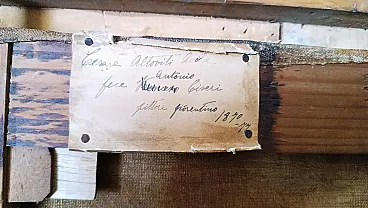 Cesare Altoviti
Antonio
fece Ciseri
pittore fiorentino
1870